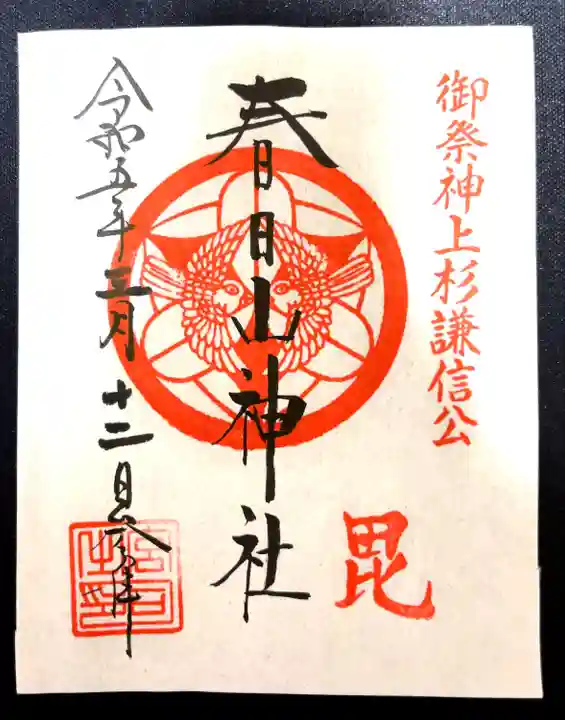 御祭神上杉謙信公
毘
春日山神社
令和五年三月十二日参拝